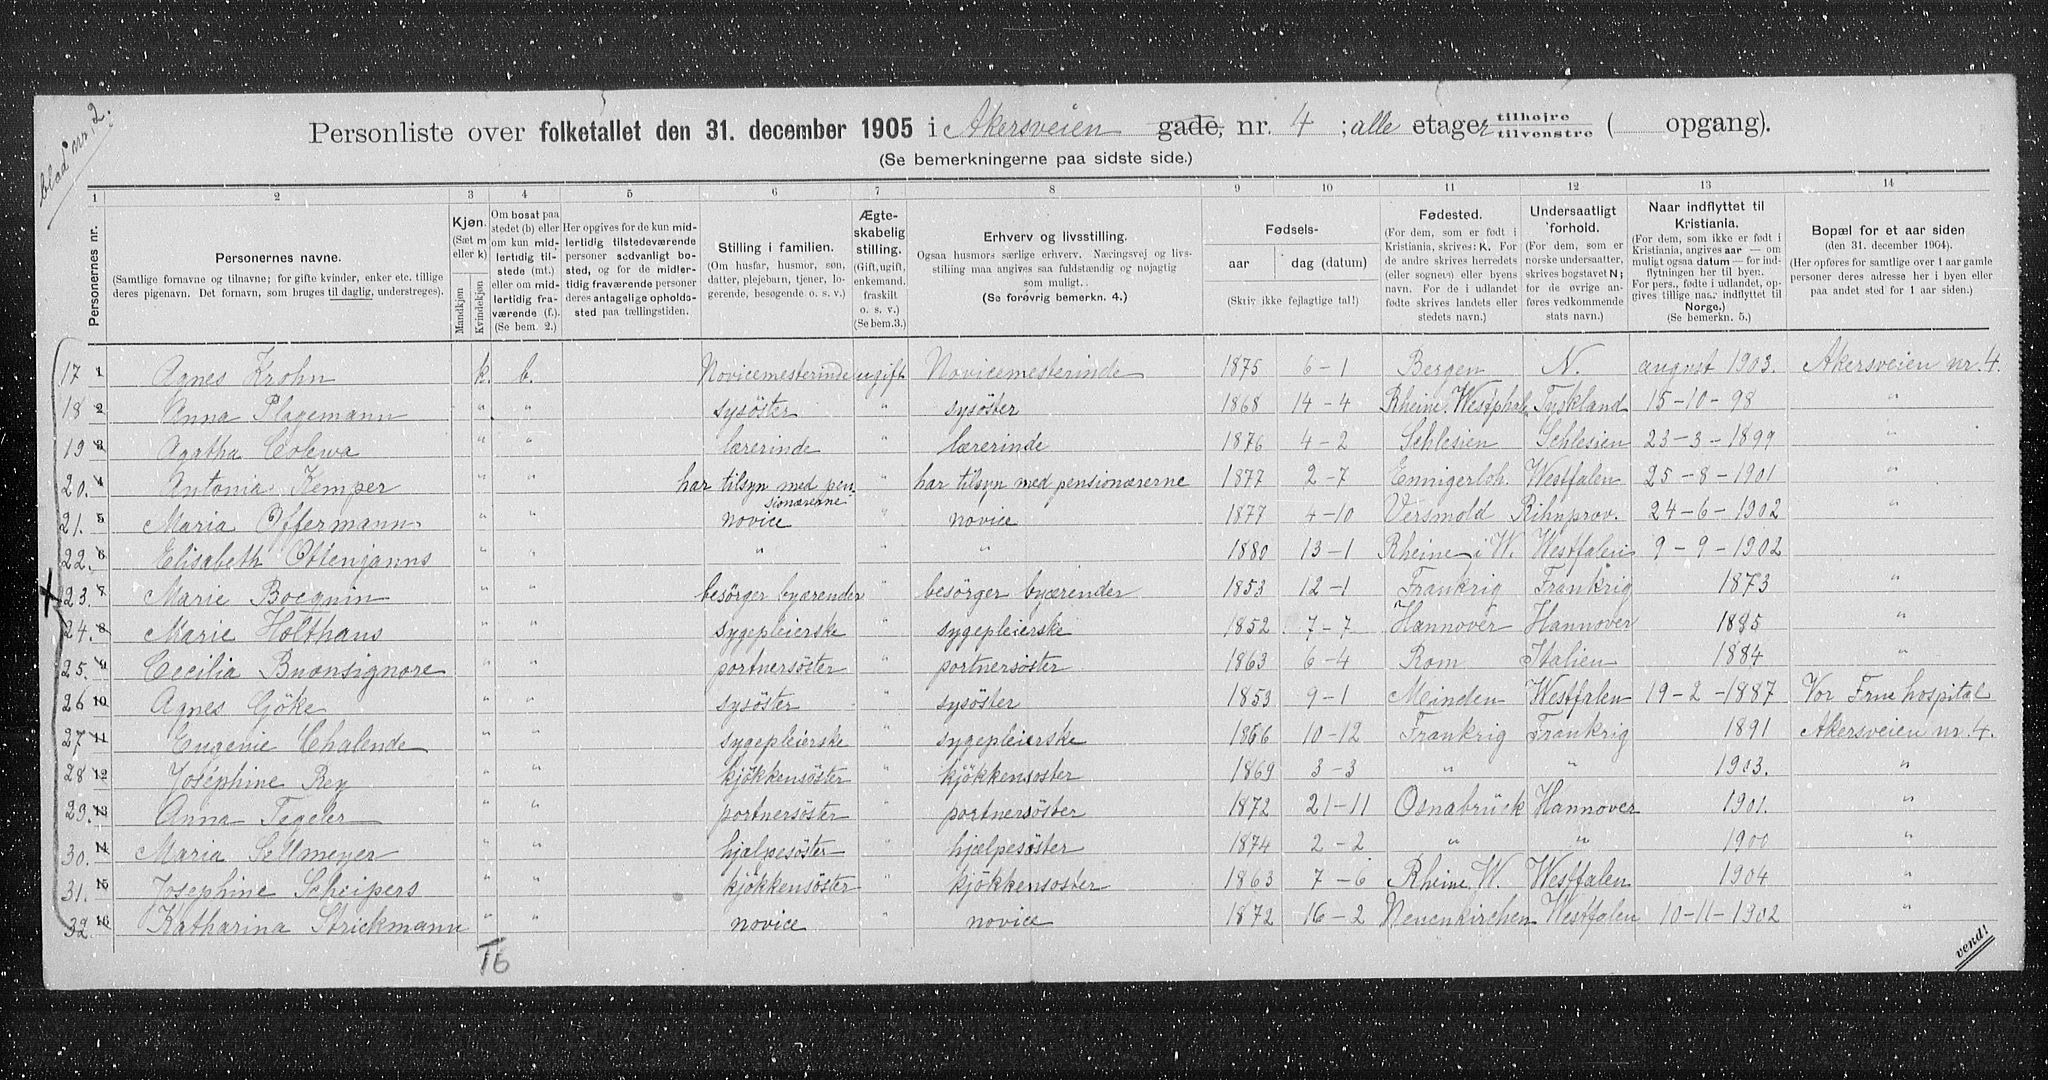 blad nr. 2.
Personliste over folketallet den 31. december 1905 i Akersveien gade, nr. 4 ; alle etager tilhøjre tilvenstre ( opgang).
(Se bemerkningerne paa sidste side.)
1 2 3 4 5 6 7 8 9 10 11 12 13 14
Personernes nr.
Personernes navne.
(Samtlige fornavne og tilnavne; for gifte kvinder, enker etc. tillige
deres pigenavn. Det fornavn, som bruges til daglig, understreges).
Kjøn.
(Sæt m
eller k)
Mandkjøn
Kvindekjøn
Om bosat paa
stedet (b) eller
om kun mid-
lertidig til-
stede (mt.)
eller om mid-
lertidig fra-
værende (f.).
(Se bem. 2.)
Her opgives for de kun mid-
lertidig tilstedeværende
personer sedvanlig bo-
sted, og for de midler-
tidig fraværende personer
deres antagelige opholds-
sted paa tællingstiden.
Stilling i familien.
(Om husfar, husmor, søn,
datter, plejebarn, tjener, lo-
gerende, besøgende o. s. v.)
Ægte-
skabelig
stilling.
(Gift, ugift,
enkemand,
fraskilt
o. s. v.)
(Se bem. 3.)
Erhverv og livsstilling.
Ogsaa husmors særlige erhverv. Næringsvej og livs-
stilling maa angives saa fuldstændig og nøjagtig
som muligt.
(Se forøvrig bemerkn. 4.)
Fødsels-
aar dag (datum)
(Skriv ikke fejlagtige tal!)
Fødested.
(For dem, som er født i
Kristiania, skrives: K. For
de andre skrives herredets
(eller sognets) eller byens
navn. For de i udlandet
fødte skrives landets eller
stedets navn.)
Undersaatligt
forhold.
(For dem, som er
norske undersaatter,
skrives bogstavet N;
for de øvrige an-
føres vedkommende
stats navn.)
Naar indflyttet til
Kristiania.
(For dem, som ikke er født i
Kristiania, angives aar — om
muligt ogsaa datum — for ind-
flytningen her til byen.
For pers., fødte i udlandet, op-
gives tillige naar indflyttet til
Norge.)
(Se bemerkn. 5.)
Bopæl for et aar siden
(den 31. december 1904).
(Her opføres for samtlige over 1 aar gamle
personer deres adresse her i byen eller
paa andet sted for 1 aar siden.)
17 1 Agnes Krohn k. b. Novicemesterinde ugift Novicemesterinde 1875 6-1 Bergen N. august 1903. Akersveien nr. 4.
18 2 Anna Plagemann " " sysöster " sysöster 1868 14-4 Rheine. Westphal. Tyskland 15-10-98 "
19 3 Agatha Colewa " " lærerinde " lærerinde 1876 4-2 Schlesien Schlesien 23-3-1899 "
20. 4 Antonia Kemper " " har tilsyn med pen- " har tilsyn med pensionærerne 1877 2-7 Ennigerloh. Westfalen 25-8-1901 "
sionærerne
21. 5 Maria Offermann " " novice " novice 1877 4-10 Versmold Rihnprov. 24-6-1902 "
22. 6 Elisabeth Ottenjanns " " " " 1880 13-1 Rheine i W. Westfalen 9-9-1902
23. 7 Marie Bocquin " " besörger byærender " besörger byærender 1853 12-1 Frankrig Frankrig 1873 "
24. 8 Marie Holthaus " " sygepleierske " sygepleierske 1852 7-7 Hannover Hannover 1885 "
25. 9 Cecilia Buonsignore " " portnersöster " portnersöster 1863 6-4 Rom Italien 1884 "
26 10 Agnes Göke " " sysöster " sysöster 1853 9-1 Meinden Westfalen 19-2-1887 Vor Frue hospital
27 11 Eugenie Chalende " " sygepleierske " sygepleierske 1866 10-12 Frankrig Frankrig 1891 Akersveien nr. 4.
28 12 Joséphine Rey " " kjökkensöster " kjökkensöster 1869 3-3 " " 1903. "
29. 13 Anna Tegeler " " portnersöster " portnersöster 1872 21-11 Osnabrück Hannover 1901. "
30. 14 Maria Sellmeyer " " hjælpesöster " hjælpesöster 1874 2-2 " " 1900 "
31. 15 Josephine Scheipers " " kjökkensöster " kjökkensoster 1863 7-6 Rheine. W. Westfalen 1904 "
32 16 Katharina Strickmann " " novice " novice 1872 16-2 Neuenkirchen Westfalen 10-11-1902 "
vend!